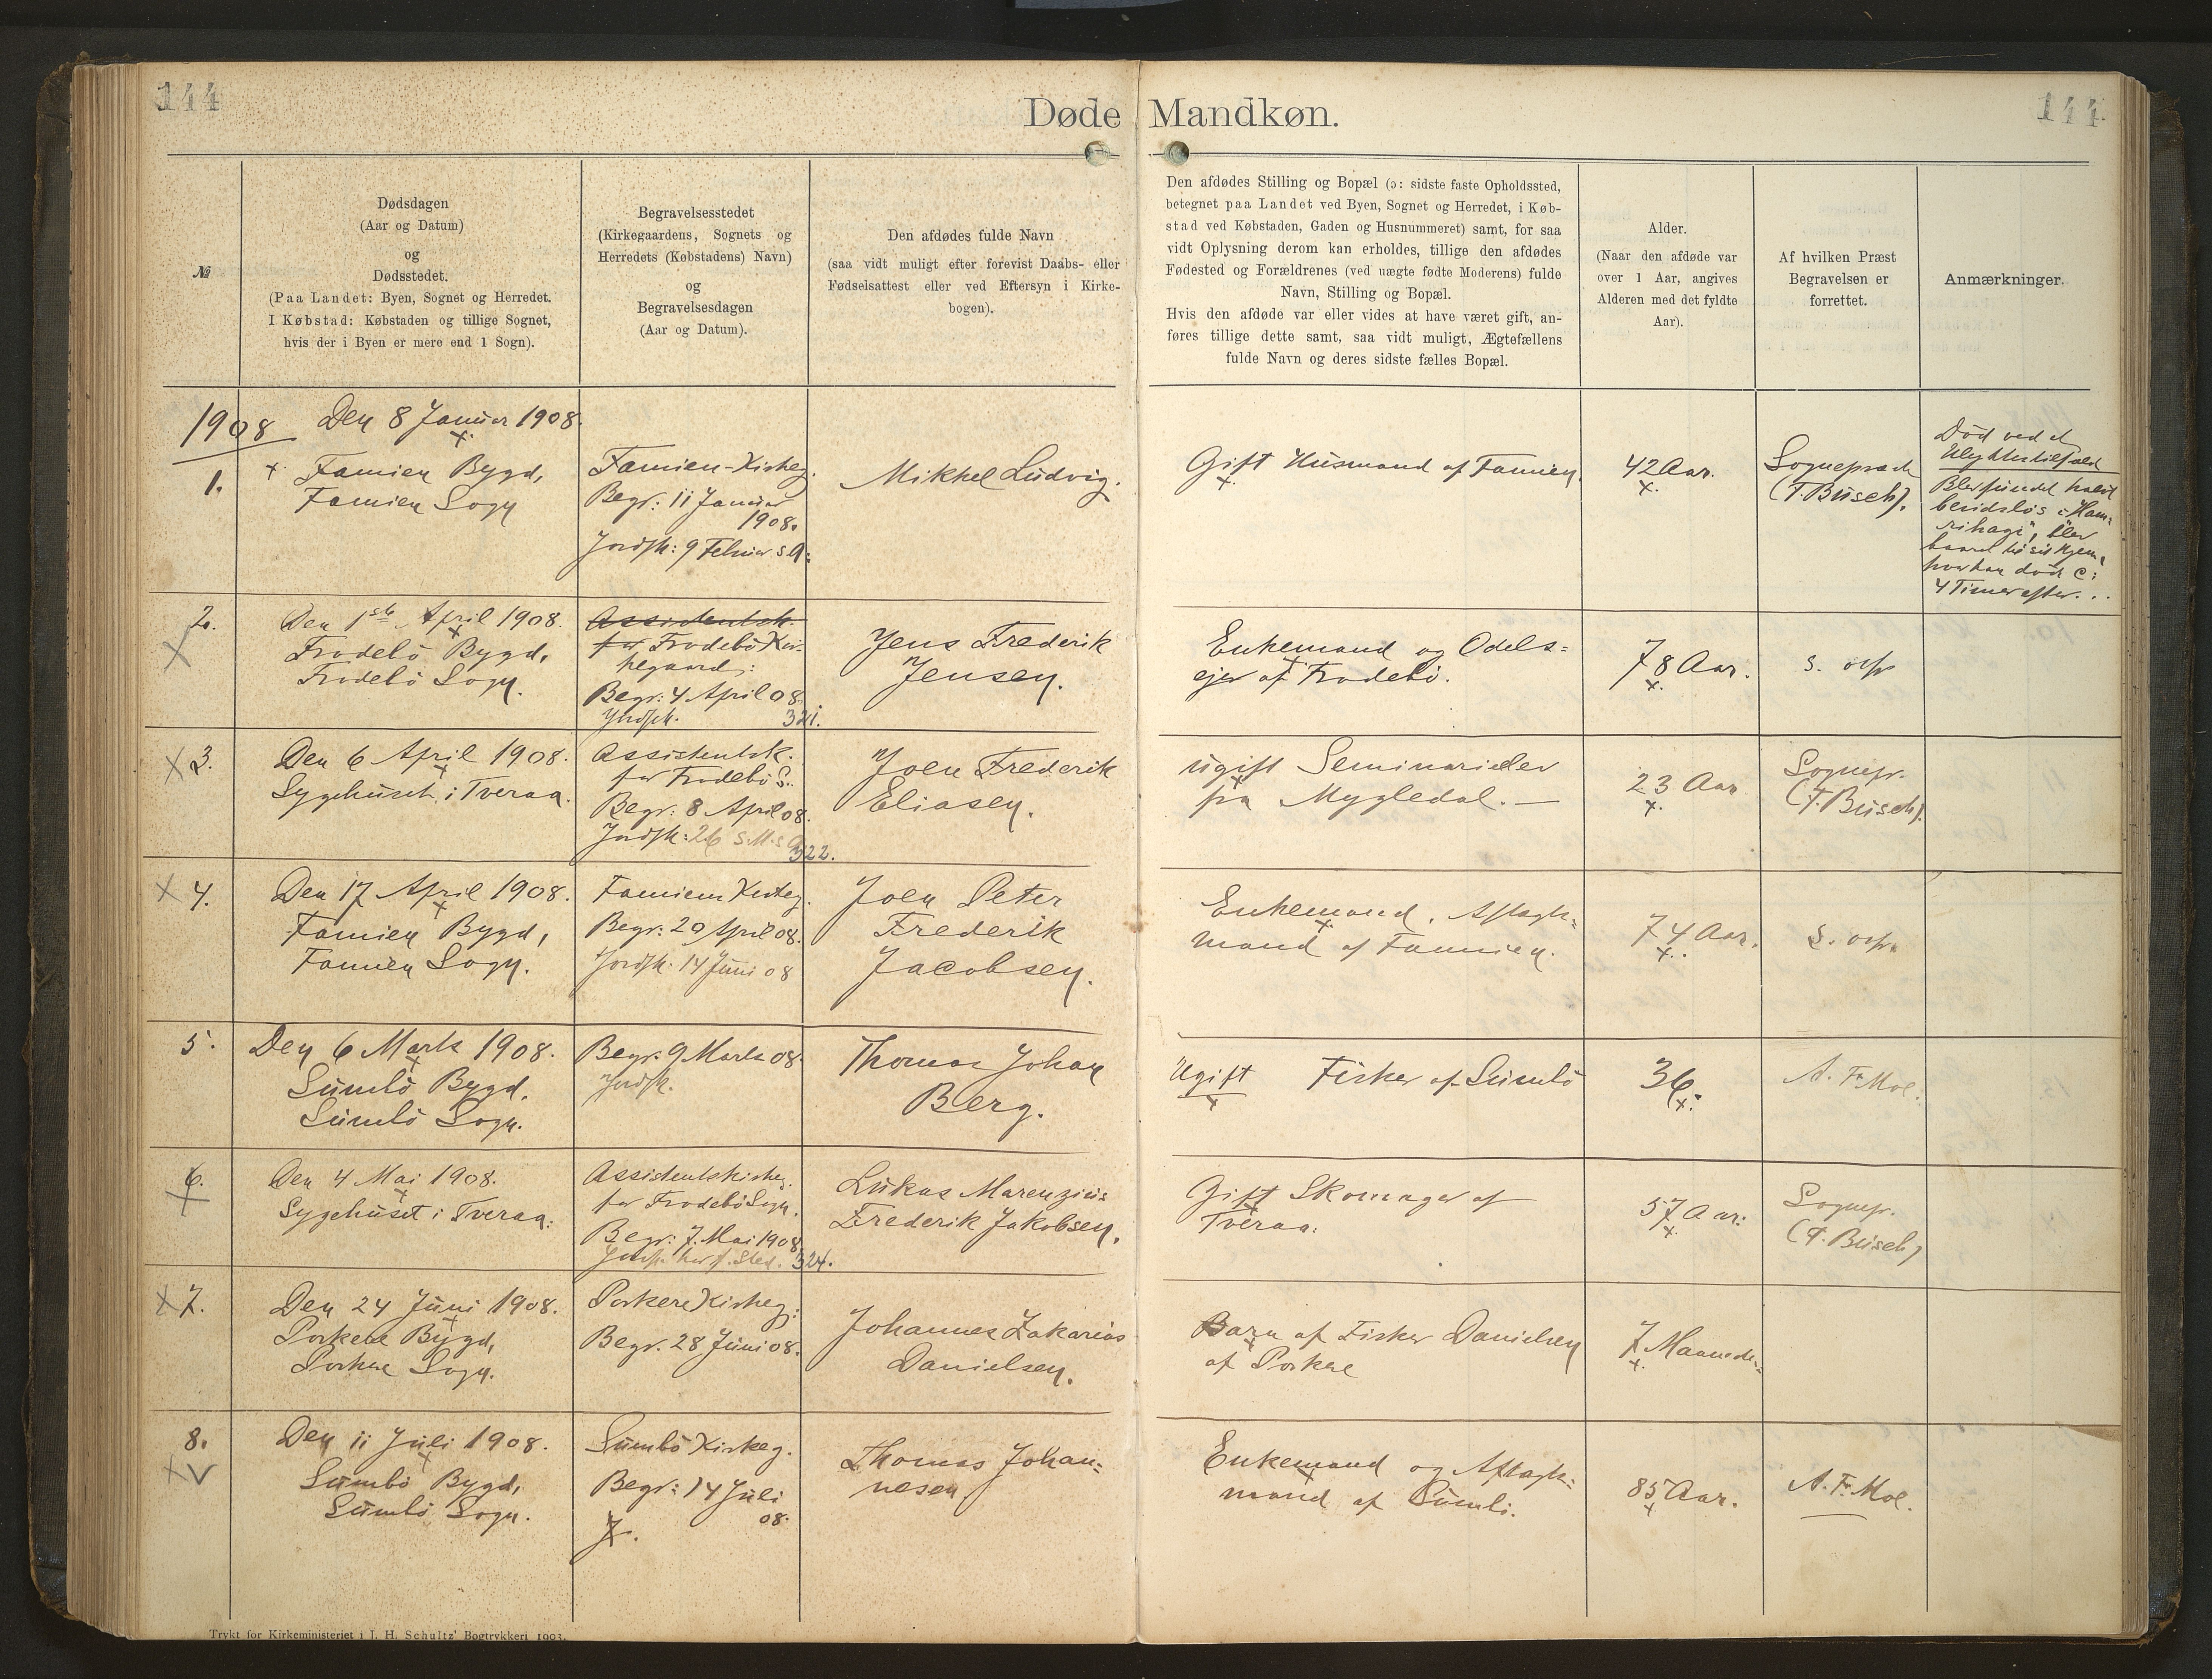 144
144
Døde Mandkøn.
№
Dødsdagen
(Aar og Datum)
og
Dødsstedet.
(Paa Landet: Byen, Sognet og Herredet.
I Købstad: Købstaden og tillige Sognet,
hvis der i Byen er mere end 1 Sogn).
Begravelsesstedet
(Kirkegaardens, Sognets og
Herredets (Købstadens) Navn)
og
Begravelsesdagen
(Aar og Datum).
Den afdødes fulde Navn
(saa vidt muligt efter forevist Daabs- eller
Fødselsattest eller ved Eftersyn i Kirke-
bogen).
Den afdødes Stilling og Bopæl (ɔ: sidste faste Opholdssted,
betegnet paa Landet ved Byen, Sognet og Herredet, i Køb-
stad ved Købstaden, Gaden og Husnummeret) samt, for saa
vidt Oplysning derom kan erholdes, tillige den afdødes
Fødested og Forældrenes (ved uægte fødte Moderens) fulde
Navn, Stilling og Bopæl.
Hvis den afdøde var eller vides at have været gift, an-
føres tillige dette samt, saa vidt muligt, Ægtefællens
fulde Navn og deres sidste fælles Bopæl.
Alder.
(Naar den afdøde var
over 1 Aar, angives
Alderen med det fyldte
Aar).
Af hvilken Præst
Begravelsen er
forrettet.
Anmærkninger.
1908
1.
Den 8 Januar 1908.
Famien Bygd,
Famien Sogn
Famien-Kirkeg.
Begr: 11 Januar
1908.
Jordsk: 9 Februar s A:
Mikkel Ludvig.
Gift Husmand af Famien.
42 Aar.
Sognepræst
(F. Busch).
Død ved et
Ulykkestilfæld
Blev fundet halvt
bevidstløs i "Ham-
rihagi", blev
baaret til sit Hjem,
hvor han døde c:
4 Timer efter. . .
2.
Den 1ste April 1908.
Frodebö Bygd,
Frodebö Sogn.
Assistentsk.
for Frodebö Kir-
kegaard:
Begr: 4 April 08.
Jordsk. 321.
Jens Frederik
Jensen.
Enkemand og Odels=
ejer af Frodebö.
78 Aar.
s. ovf.
3.
Den 6 April 1908.
Sygehuset i Tveraa.
Assistentsk.
for Frodebö S.
Begr: 8 April 08.
Jordsk: 26 s.M.s A
322.
Joen Frederik
Eliasen.
ugift Seminarielev
fra Mygledal. —
23 Aar
Sognepr.
(F. Busch).
4.
Den 17 April 1908.
Famien Bygd,
Famien Sogn.
Famiens Kirkeg.
Begr: 20 April 08.
Jordsk. 14 Juni 08
Joen Peter
Frederik
Jacobsen.
Enkemand, Aftægts=
mand af Famien.
74 Aar.
s. ovf.
5.
Den 6 Marts 1908.
Sumbö Bygd,
Sumbö Sogn.
Begr: 9 Marts 08.
Jordsk.
Thomas Johan
Berg.
Ugift Fisker af Sumbö
36.
A. Fr. Moe.
6.
Den 4 Mai 1908.
Sygehuset i Tveraa:
Assistentskirkeg.
for Frodebö Sogn.
Begr: 7. Mai 1908
324.
Lukas Marenzius
Frederik Jakobsen.
Gift Skomager af
Tveraa:
57 Aar:
Sognepr.
(F. Busch)
7.
Den 24 Juni 1908.
Porkere Bygd,
Porkere Sogn.
Porkere Kirkeg:
Begr. 28 Juni 08.
Johannes Zakarias
Danielsen.
Barn af Fisker Danielsen
af Porkere
7 Maaneder=
8.
Den 11 Juli 1908.
Sumbö Bygd,
Sumbö Sogn.
Sumbö Kirkeg.
Begr: 14 Juli
08.
J.
Thomas Johan=
nesen
Enkemand og Aftægts=
mand af Sumbö.
85 Aar.
A. Fr. Moe.
Trykt for Kirkeministeriet i J. H. Schultz' Bogtrykkeri 1903.